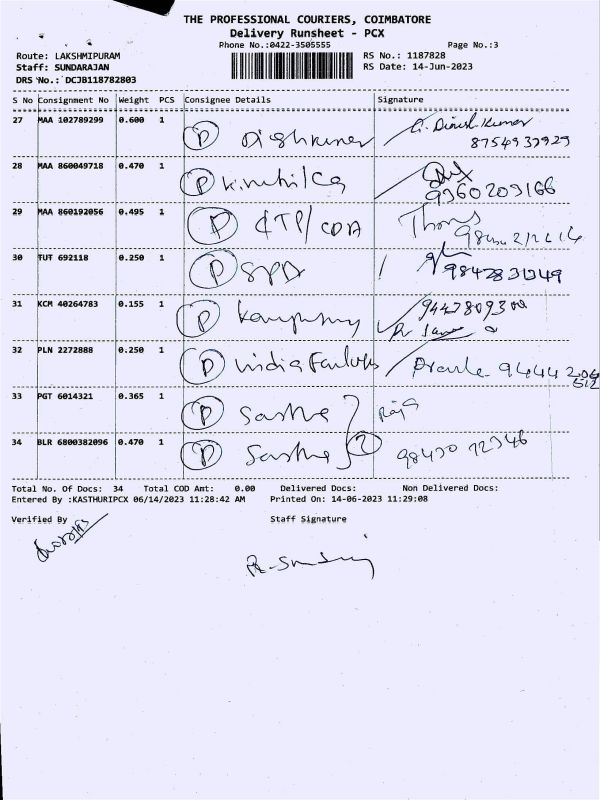 THE PROFESSIONAL COURIERS, COIMBATORE
Delivery Runsheet - PCX
Phone No.:0422-3505555 Page No.:3
Route: LAKSHMIPURAM RS No.: 1187828
Staff: SUNDARAJAN RS Date: 14-Jun-2023
DRS No.: DCJB118782803
S No Consignment No Weight PCS Consignee Details Signature
27 MAA 102789299 0.600 1 P Dishkumar G. Dinesh Kumar
8754937929
28 MAA 860049718 0.470 1 P 9360209166
29 MAA 860192056 0.495 1 P CTP/CDA
30 TUT 692118 0.250 1 P SPD
31 KCM 40264783 0.155 1 P
32 PLN 2272888 0.250 1 P India 9444 206
512
33 PGT 6014321 0.365 1 P Sastha Raja
34 BLR 6800382096 0.470 1 P Sastha 2 98430 72346
Total No. Of Docs: 34 Total COD Amt: 0.00 Delivered Docs: Non Delivered Docs:
Entered By :KASTHURIPCX 06/14/2023 11:28:42 AM Printed On: 14-06-2023 11:29:08
Verified By Staff Signature